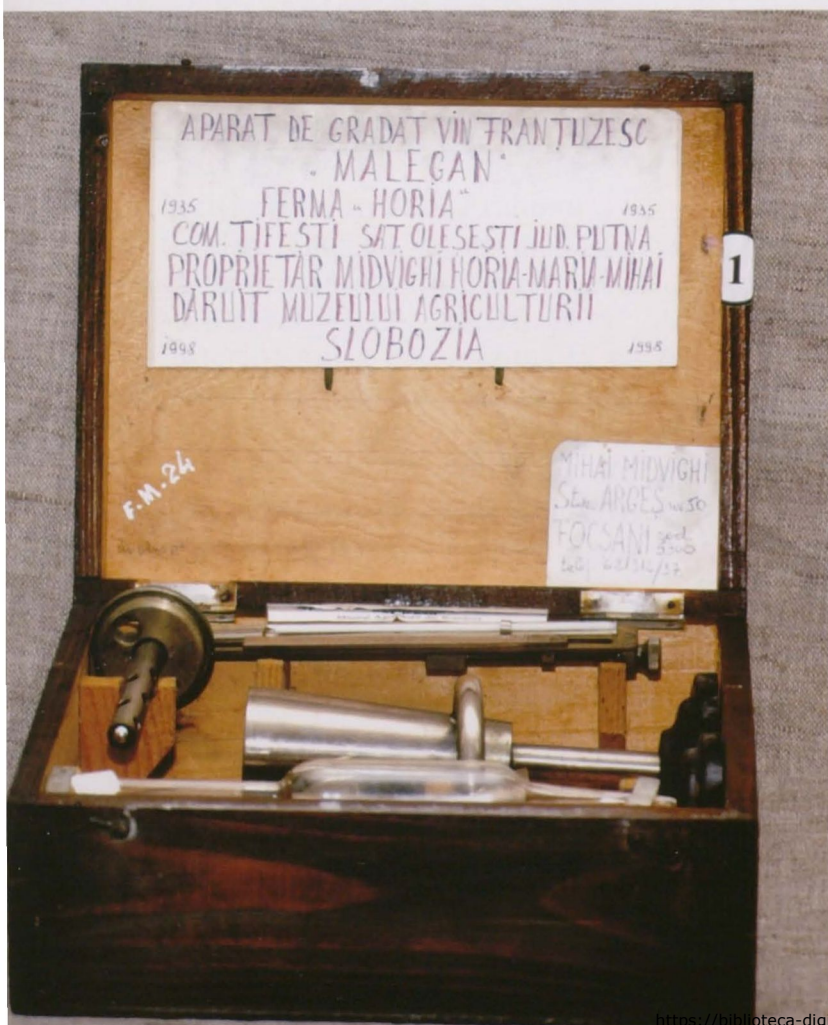 APARAT DE GRADAT VIN FRANȚUZESC
"MALEGAN"
1935 FERMA "HORIA" 1935
COM. ȚIFEȘTI SAT. OLEȘEȘTI JUD. PUTNA
PROPRIETAR MIDVIGHI HORIA-MARIA-MIHAI
DĂRUIT MUZEULUI AGRICULTURII
1998 SLOBOZIA 1998
1
F.M.24
MIHAI MIDVIGHI
Str. ARGEȘ nr 50
FOCȘANI cod.
https://biblioteca-dig